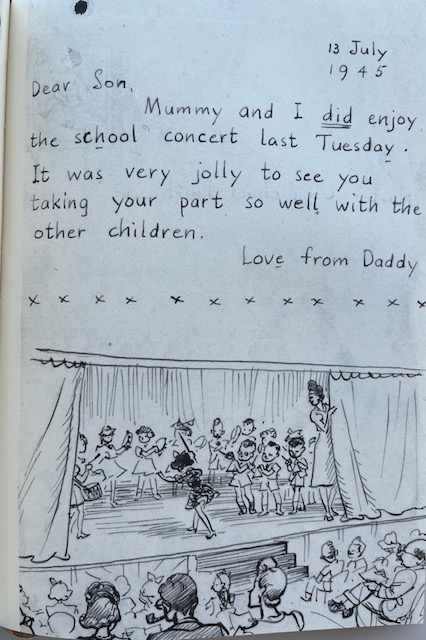 13 July
1945
Dear Son,
Mummy and I did enjoy
the school concert last Tuesday.
It was very jolly to see you
taking your part so well with the
other children.
Love from Daddy
x x x x x x x x x x x